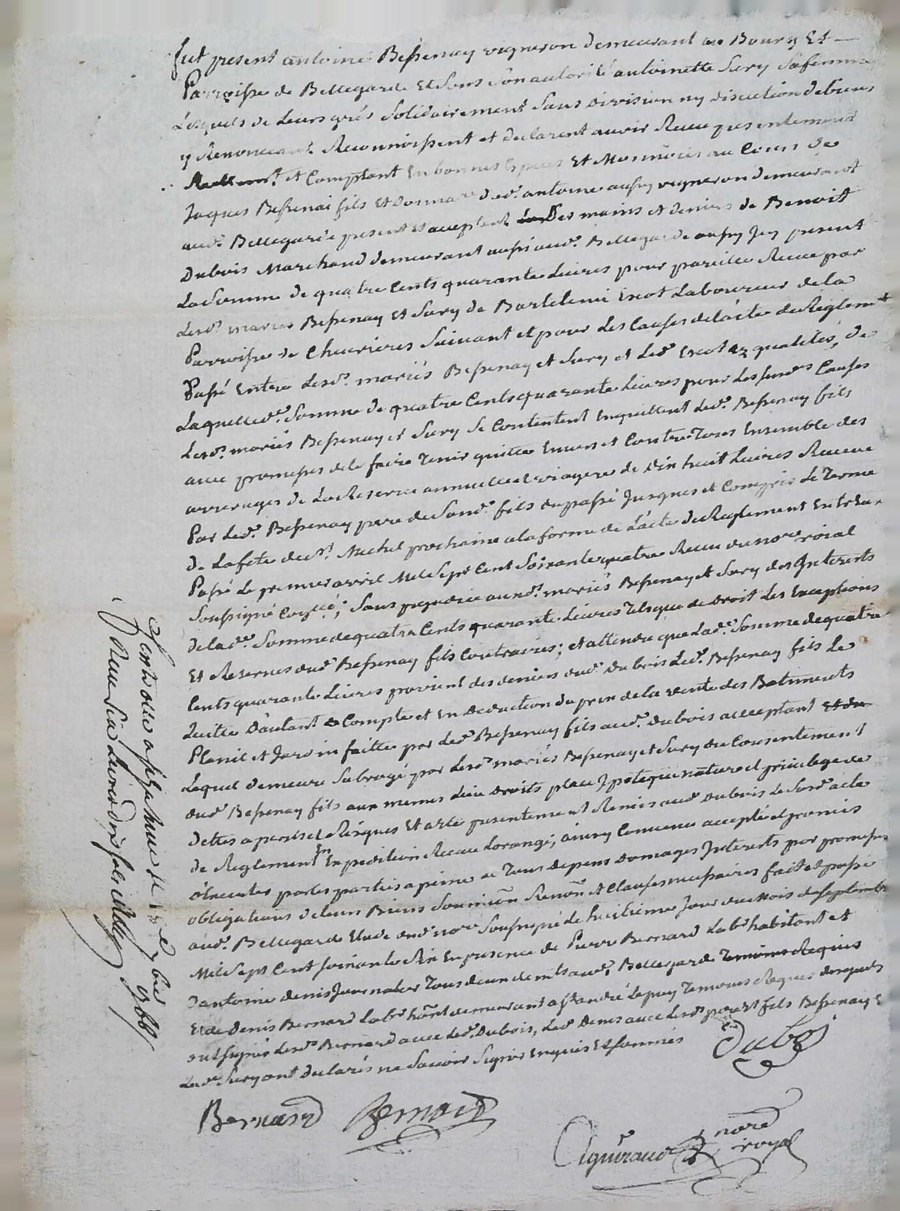 fut present antoine Bessenay vigneron demeurant au Bourg Et
Parroisse de Bellegarde Et Sous Son autorité antoinette Sury Sa femme
Lesquels de Leurs grés Solidairement Sans division ny discution de biens
y Renonceant Reconnoissent et declarent avoir Receu presentement
et Comptant En bonnes Especes Et Monnoies au Cours de
Jaques Bessenai fils Et donnataire dud. antoine aussy vigneron demeurant
aud. Bellegarde present Et acceptant des mains et deniers de Benoit
Dubois Marchand demeurant aussi aud. Bellegarde aussy Icy present
La Somme de quatre Cents quarante Livres pour pareille Receue par
Lesd. mariés Bessenay et Sury de Bartelemi Laboureur de la
Parroisse de Chevrieres Suivant et pour Les Causes de L'acte de Reglement
Passé Entre Lesd. mariés Bessenay et Sury et Led. qualités, de
Laquelle d. Somme de quatre Cents quarante Livres pour Les susd. Causes
Lesd. mariés Bessenay et Sury Se Contentent En quittent Led. Bessenay fils
avec promesses de le faire Tenir quitte Envers et Contre Tous Ensemble des
arrerages de La Reserve annuelle et viagere de Dix huit Livres Receue
Par Led. Bessenay pere de Sond. fils du passé Jusques et Compris Le Terme
de La fete de St. Michel prochaine a la forme de L'acte de Reglement Entr'eux
Passé Le premier avril Mil Sept Cent Soixante quatre Receu du nore. roial
Soussigné ; Sans prejudice aux d. mariés Bessenay et Sury des Interests
de la d. Somme de quatre Cents quarante Livres Tels que de Droit Les Exceptions
Et Reserves dud. Bessenay fils Contraires ; et attendu que Lad. Somme de quatre
Cents quarante Livres provient des deniers dud. Dubois Led. Bessenay fils Le
quitte D'autant Compte et En Deduction du prix de la vente des Batiments
et Jardin faitte par Led. Bessenay fils aud. Dubois acceptant
Lequel demeure Subrogé par Lesd. mariés Bessenay et Sury du Consentement
dud. Bessenay fils aux memes Lieu Droits place Ipoteque nature et privilege de
dettes a perils et Risques Et a Eté presentement Remis aud. Dubois Le Susd. acte
de Reglement En Expedition Receue ; ainsy Convenu accepté et promis
par les parties a peine de Tous depens domages Interests par promesses
obligations de Leurs Biens Soumion Renon et Clauses necessaires fait et passé
aud. Bellegarde Etude dud. nore Soussigné Le huitieme Jour du Mois de Septembre
Mil Sept Cent soixante Six En presence de Pierre Bernard Lab. habitant et
d'antoine denis Journalier Tous deux dem.ts aud. Bellegarde
Et de Denis Bernard Lab. demeurant a St. andré le puy Temoins Requis desquels
ont signés Lesd. Bernard avec Led. Dubois, Led. Denis avec Lesd. pere Et fils Bessenay Et
Lad. Sury ont declarés ne Savoir Signer Enquis Et sommés
Dubois
Bernard
Bernard
nore
royal